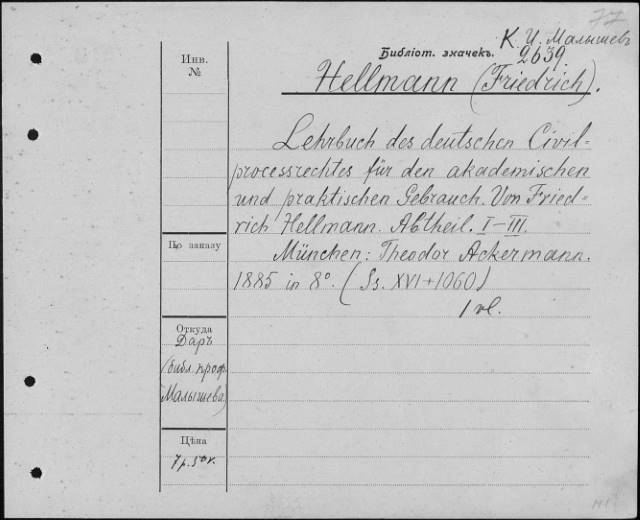 77
К. И. Малышев
Библіот. значекъ. 2639
Hellmann (Friedrich).
Инв.
№
Lehrbuch des deutschen Civil-
processrechtes für den akademischen
und praktischen Gebrauch. Von Fried-
rich Hellmann. Abtheil. I–III.
По заказу
München: Theodor Ackermann.
1885 in 8°. (Ss. XVI+1060)
1 vl.
Откуда
Даръ
(библ. проф.
Малышева)
Цѣна
7 р. 50 к.